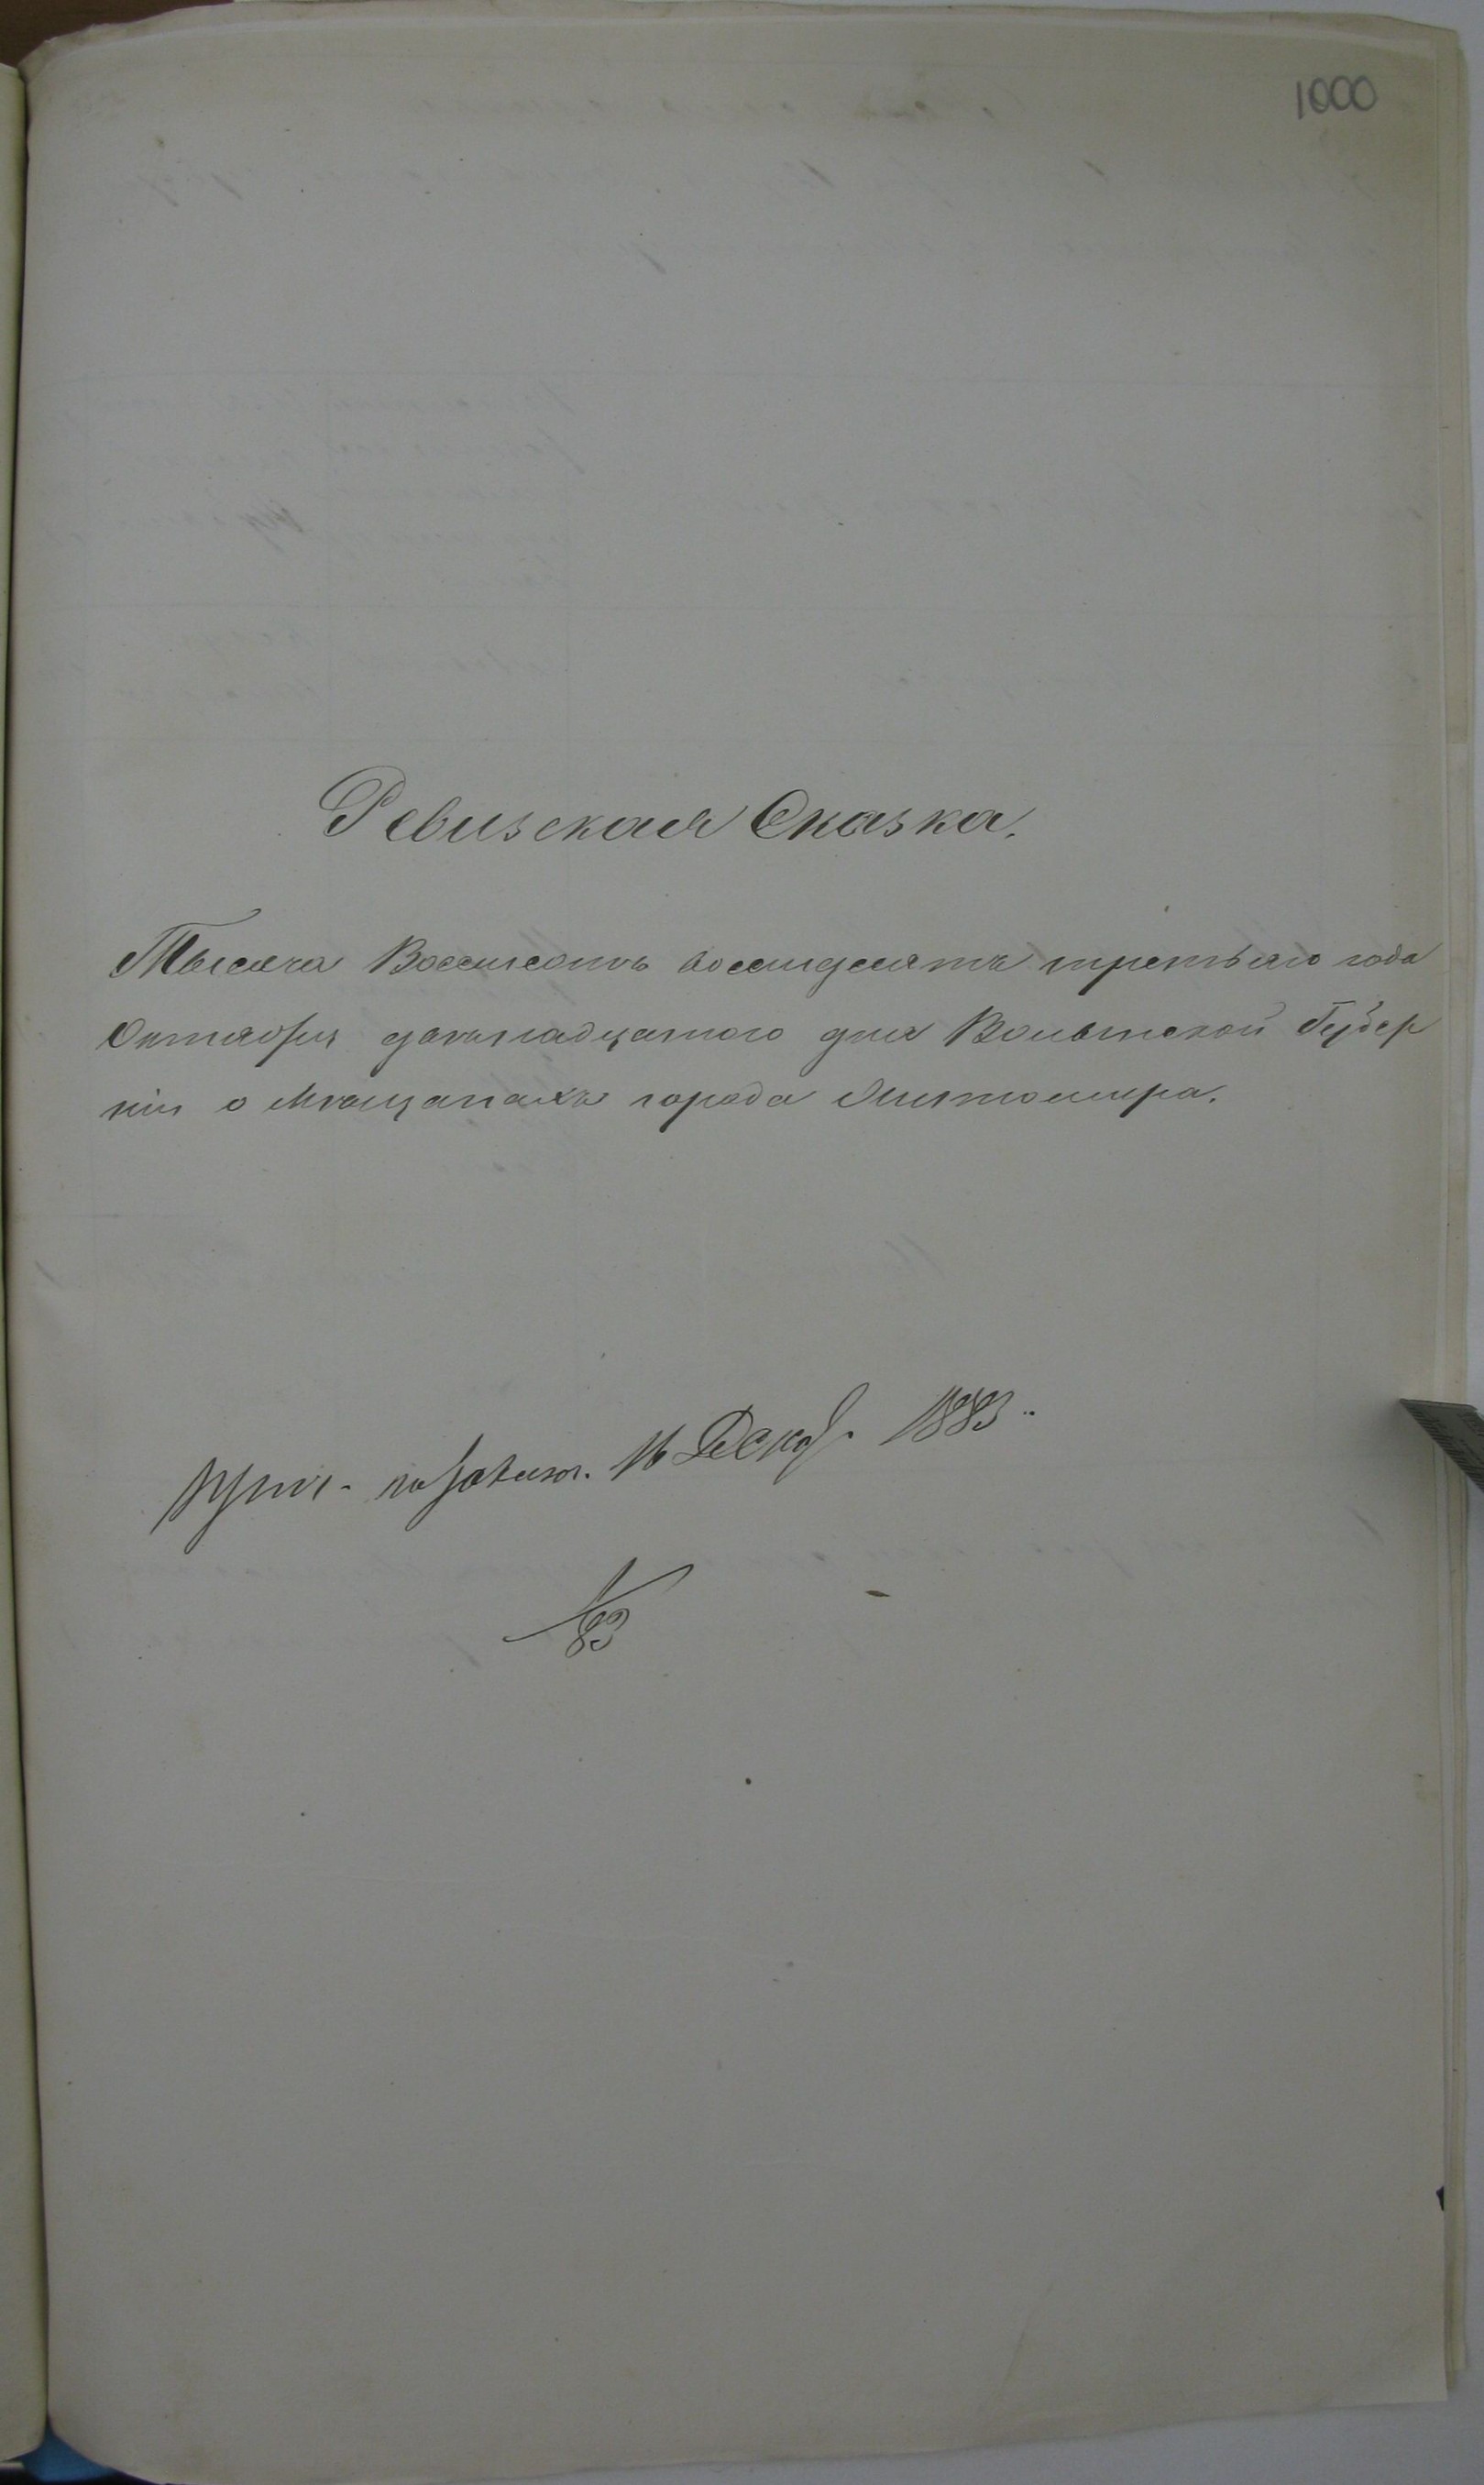 1000
Ревизская Сказка.
Тысяча Восемсотъ восемдесятъ третьяго года
Октября двенадцатого дня Волынской Губер
ніи о Мѣщанахъ города Житомира.
16 Декаб. 1883
83